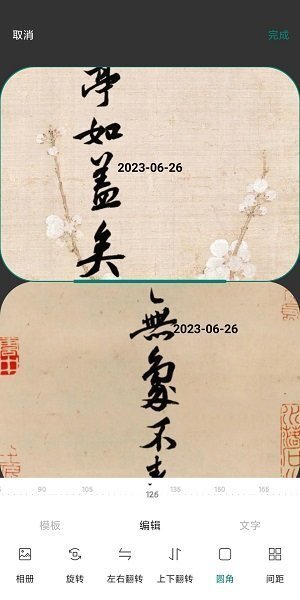 取消
完成
亭如盖矣
2023-06-26
無象不
2023-06-26
90 105 135 150 165
126
模板 编辑 文字
相册 旋转 左右翻转 上下翻转 圆角 间距